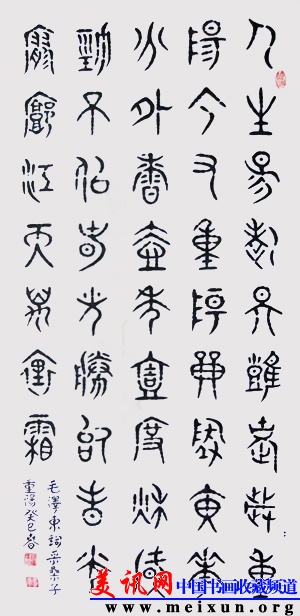 人生易老天難老歲〻重
陽今又重陽戰地黃華
分外香壹年壹度秋風
勁不佀春光勝佀春光
寥廓江天萬里霜
毛澤東詞采桑子
重陽癸巳春
美讯网 中国书画收藏频道
www.meixun.org